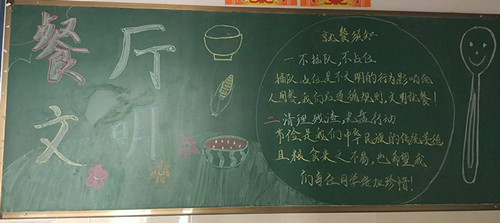 餐厅
文明
就餐须知
一 不插队,不占位
插队占位是不文明的行为影响他
人用餐,我们应遵循规则,文明就餐!
二 清理残渣,光盘行动
节俭是我们中华民族的传统美德
且粮食来之不易,也希望我
们高在同学能加珍惜!